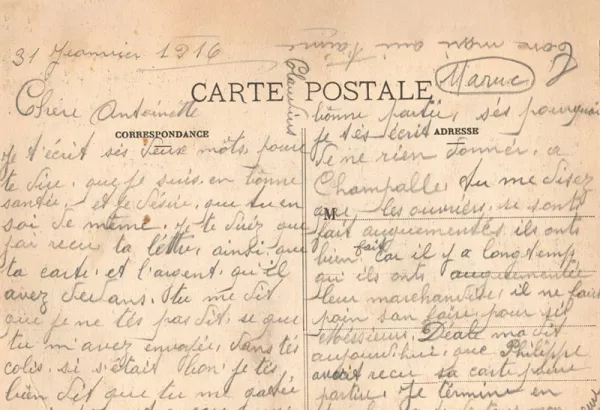 31 Jeanvier 1916
ton mari qui t'aime
Claudius
CARTE POSTALE
Maroc
CORRESPONDANCE
ADRESSE
M
Chère Antoinette
Je t'écrit ses deux mots, pour
te dire, que je suis en bonne
santée, et le désire, que tu en
soi de même, je te direz que
j'ai recu ta lettre, ainsi, que
ta carte, et l'argent, qu'il
avez dedans. tu me dit
que je ne tés pas dit, se que
tu m'avez envoiée, dans tés
colis, si s'était bon, je tés
bien dit que tu me
bonne partie, sés pourquoi
je tés écrit
de ne rien donner, a
Champalle, tu me disez
que les ouvriers, se sont
fait augumentés, ils ont
bien fait car il y a longtemp
qui ils ont augumentée
leur marchandise, il ne faut
pain san faire, pour sés
Messieurs, Déal ma dit
aujourdhui, que Philippe
avait recu sa carte
partir, Je termine en